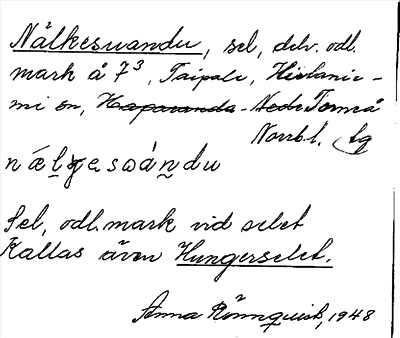 Nälkeswandu, sel, delv. odl.
mark å 7³, Taipale, Hietanie-
mi sn, Haparanda - Neder Torneå
Norrb. l. tg
næḷɡesʋánd̰u
Sel, odl. mark vid selet
Kallas även Hungerselet.
Anna Rönnquist, 1948